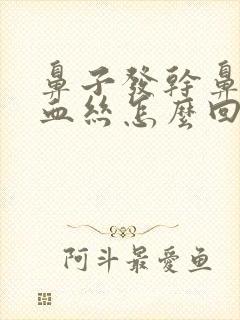 鼻子發幹鼻
血絲怎麼回
阿斗最愛鱼